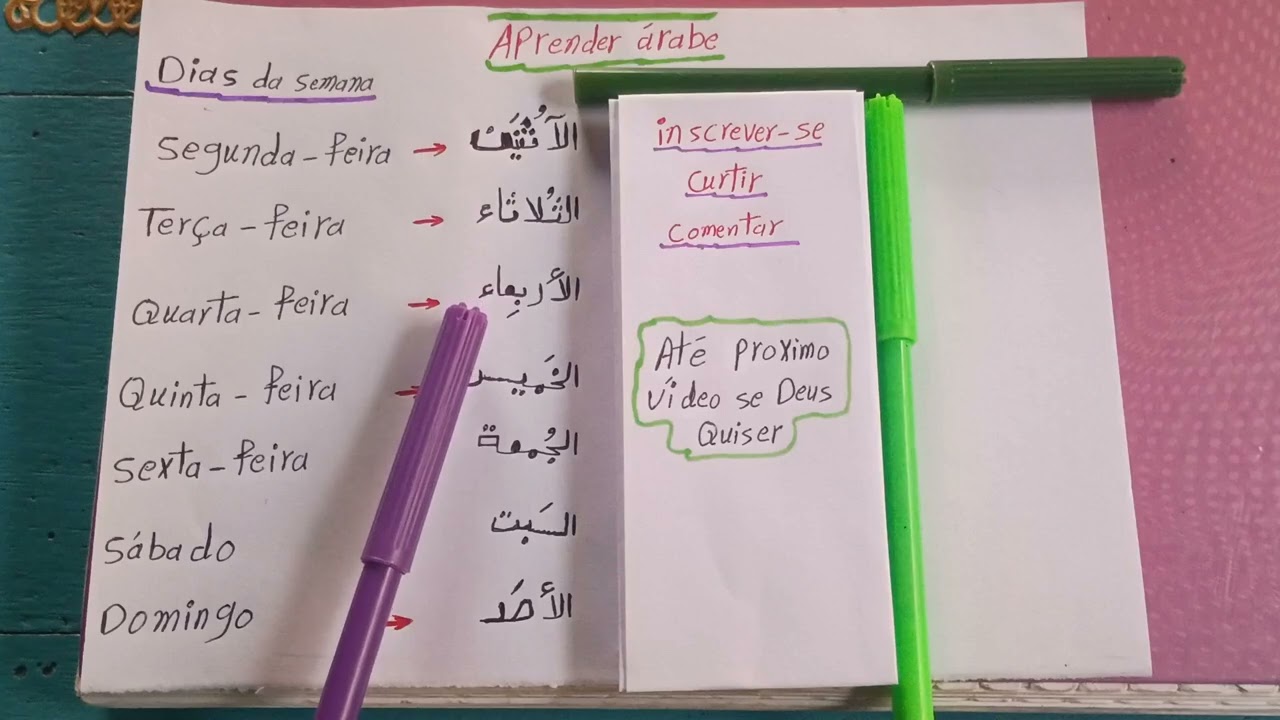 Aprender árabe
Dias da semana
Segunda-feira → الأثنين
Terça-feira → الثلاثاء
Quarta-feira → الأربِعاء
Quinta-feira → الخَميس
Sexta-feira الجُمعة
Sábado السَبت
Domingo → الأحَد
inscrever-se
curtir
comentar
Até proximo
vídeo se Deus
Quiser